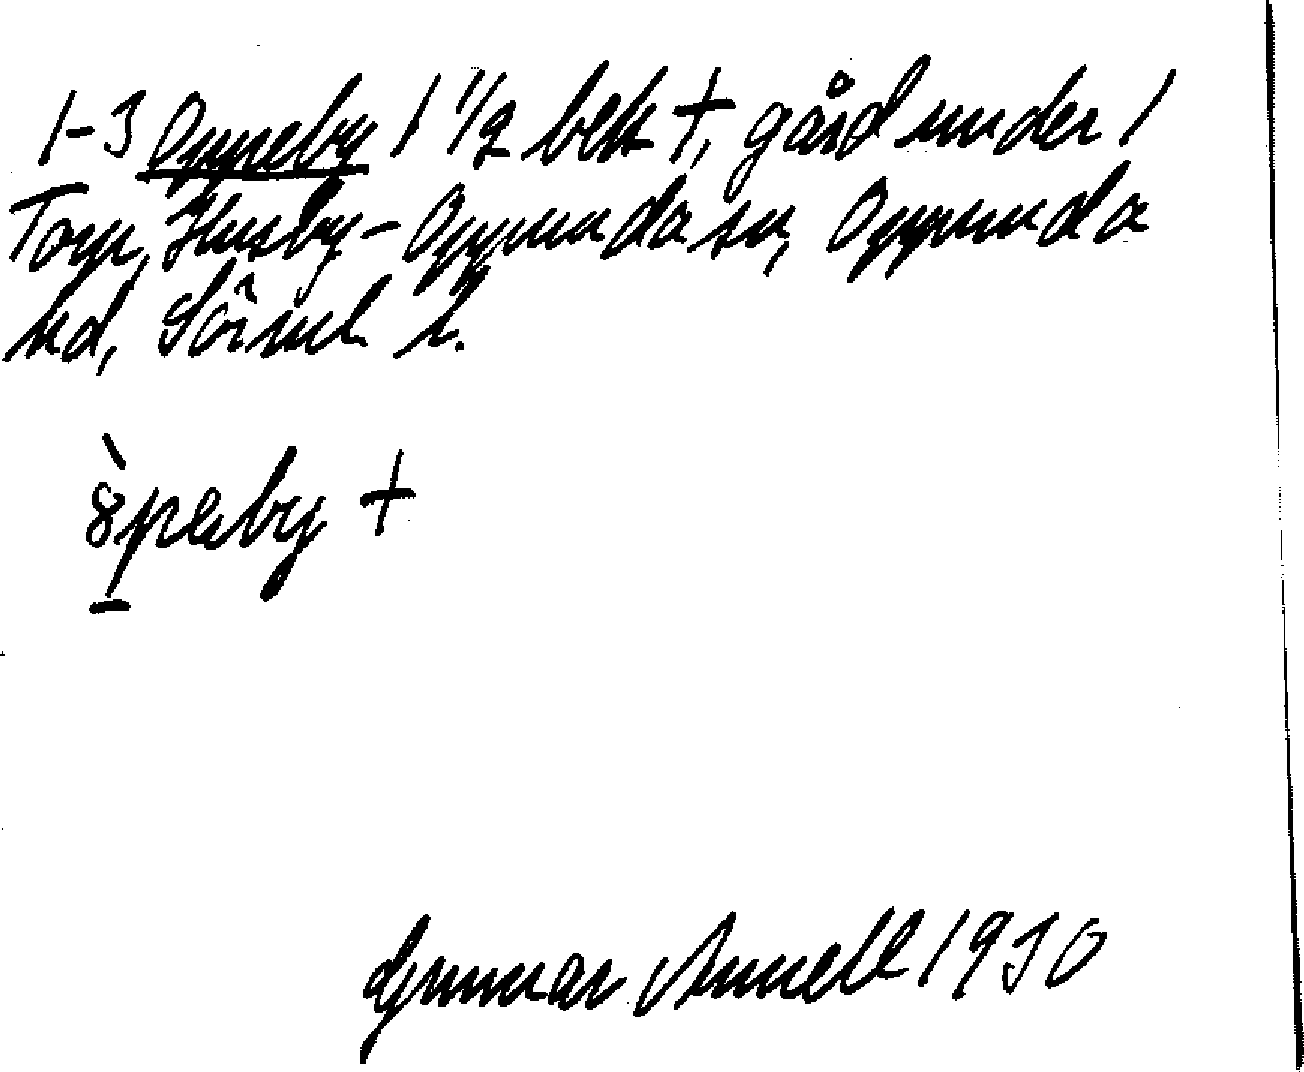 1-3 Oppeby 1 1/2 bek +, gård under 1
Torp, Husby-Oppunda sn, Oppunda
hd, Sörml l.
òpeby +
Gunnar Annell 1930